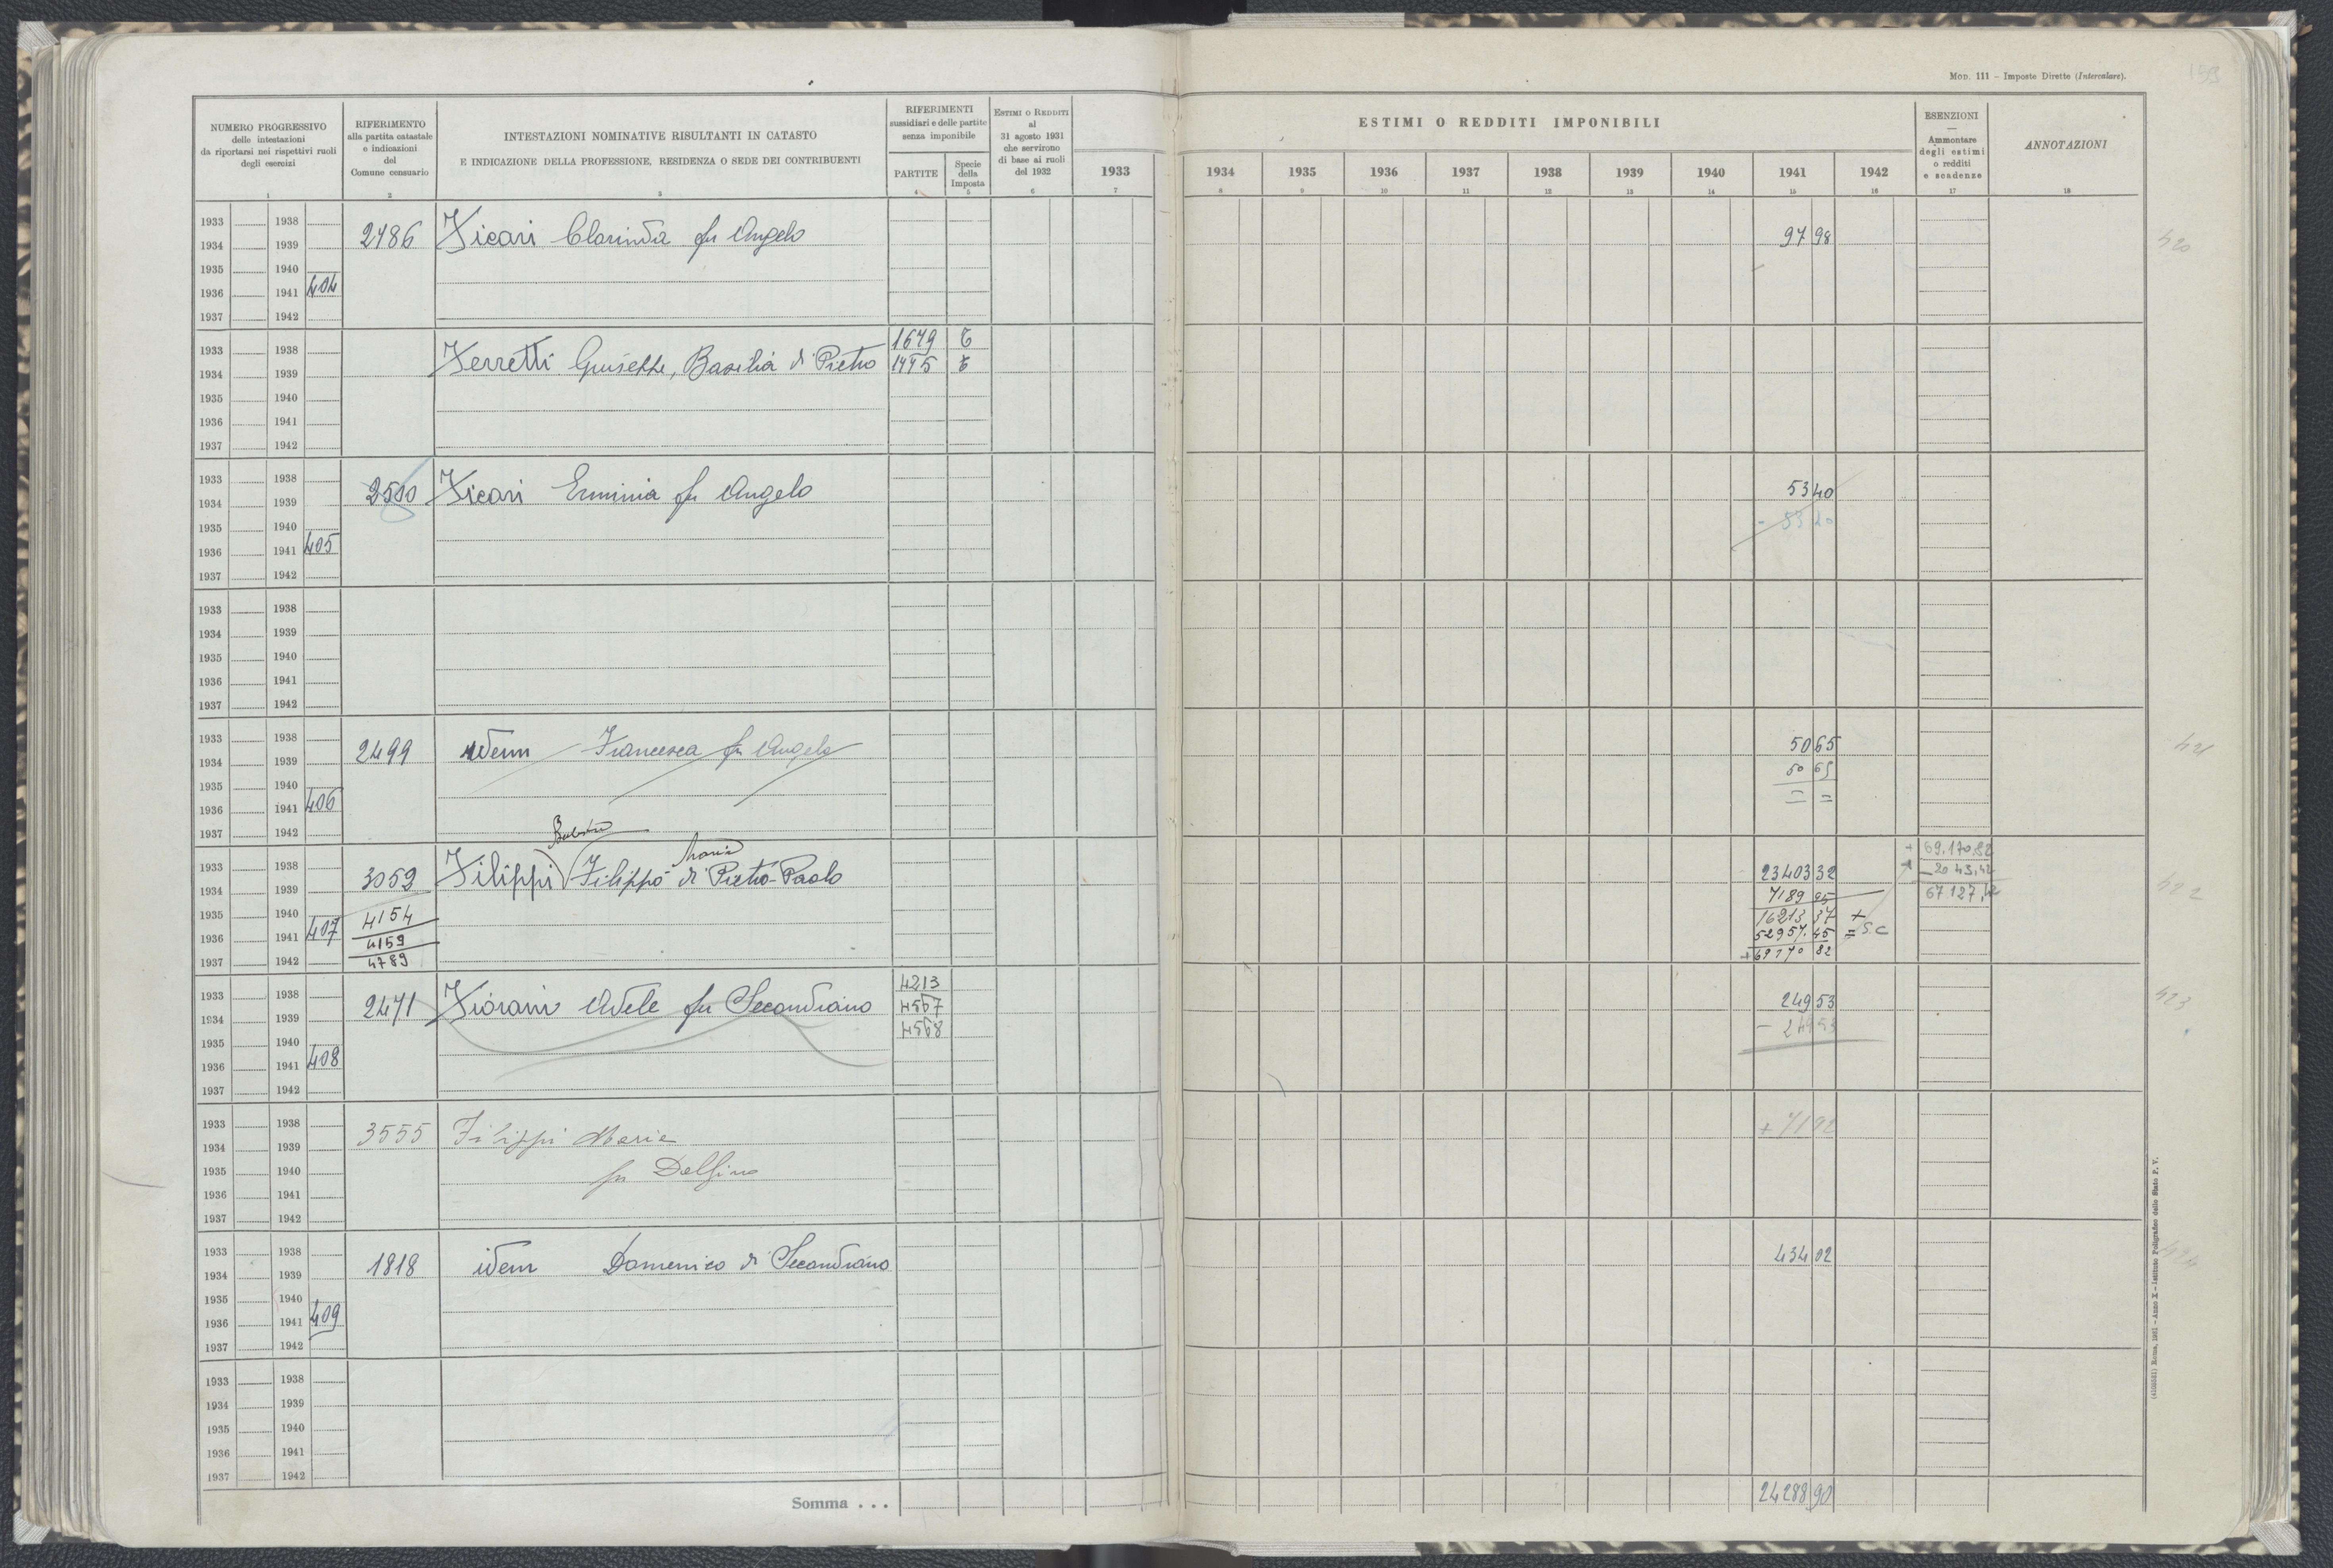 MOD. 111 – Imposte Dirette (Intercalare).
159
NUMERO PROGRESSIVO
delle intestazioni
da riportarsi nei rispettivi ruoli
degli esercizi
1
RIFERIMENTO
alla partita catastale
e indicazioni
del
Comune censuario
2
INTESTAZIONI NOMINATIVE RISULTANTI IN CATASTO
E INDICAZIONE DELLA PROFESSIONE, RESIDENZA O SEDE DEI CONTRIBUENTI
3
RIFERIMENTI
sussidiari e delle partite
senza imponibile
PARTITE
4
Specie
della
Imposta
5
ESTIMI O REDDITI
al
31 agosto 1931
che servirono
di base ai ruoli
del 1932
6
1933
7
ESTIMI O REDDITI IMPONIBILI
1934 1935 1936 1937 1938 1939 1940 1941 1942
8 9 10 11 12 13 14 15 16
ESENZIONI
—
Ammontare
degli estimi
o redditi
e scadenze
17
ANNOTAZIONI
18
1933 1938
1934 1939 2486 Ficari Clorinda fu Angelo 97 98 420
1935 1940
1936 1941 404
1937 1942
1679 T
1933 1938
1934 1939 Ferretti Giuseppe, Basilia di Pietro 1775 T
1935 1940
1936 1941
1937 1942
1933 1938
1934 1939 2500 Ficari Erminia fu Angelo 53 40
1935 1940
1936 1941 405
1937 1942
1933 1938
1934 1939
1935 1940
1936 1941
1937 1942
1933 1938
1934 1939 2499 idem Francesca fu Angelo 50 65 421
1935 1940 50 65
1936 1941 406 = =
1937 1942
69.170.82
1933 1938 Maria
1934 1939 3059 Filippi Filippo di Pietro-Paolo 23403 32 - 2043,42 422
7189 95 67127,42
1935 1940 4154 16213 37 +
1936 1941 407 4159 52957.45 = S.C
1937 1942 4789 + 69170 82
4213
1933 1938
1934 1939 2471 Fiorani Adele fu Secondiano 4567 249 53 423
1935 1940 4568 - 249 53
1936 1941 408
1937 1942
1933 1938
1934 1939 3555 Filippi Maria + 71 92
1935 1940 fu Delfino
1936 1941
1937 1942
1933 1938
1934 1939 1818 idem Domenico di Secondiano 434 02 424
1935 1940
1936 1941 409
1937 1942
1933 1938
1934 1939
1935 1940
1936 1941
1937 1942
Somma . . . 24288 90
(4103531) Roma, 1931 – Anno X – Istituto Poligrafico dello Stato P. V.